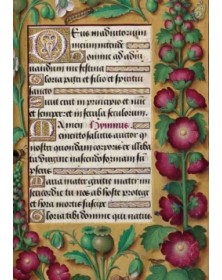 Deus in adiutorium
meum intende
Domine ad adiu
uandum me festina
Gloria patri et filio et spiritui
sancto
Sicut erat in principio et nunc
et semper et in secula seculorum
Amen Hymnus
Memento salutis auctor q
nostri quondam corporis ex illiba
ta virgine nascendo formam su
psens
Maria mater gratie mater mi
sericordie tu nos ab hoste protege
et hora mortis suscipe
Gloria tibi domine qui natus